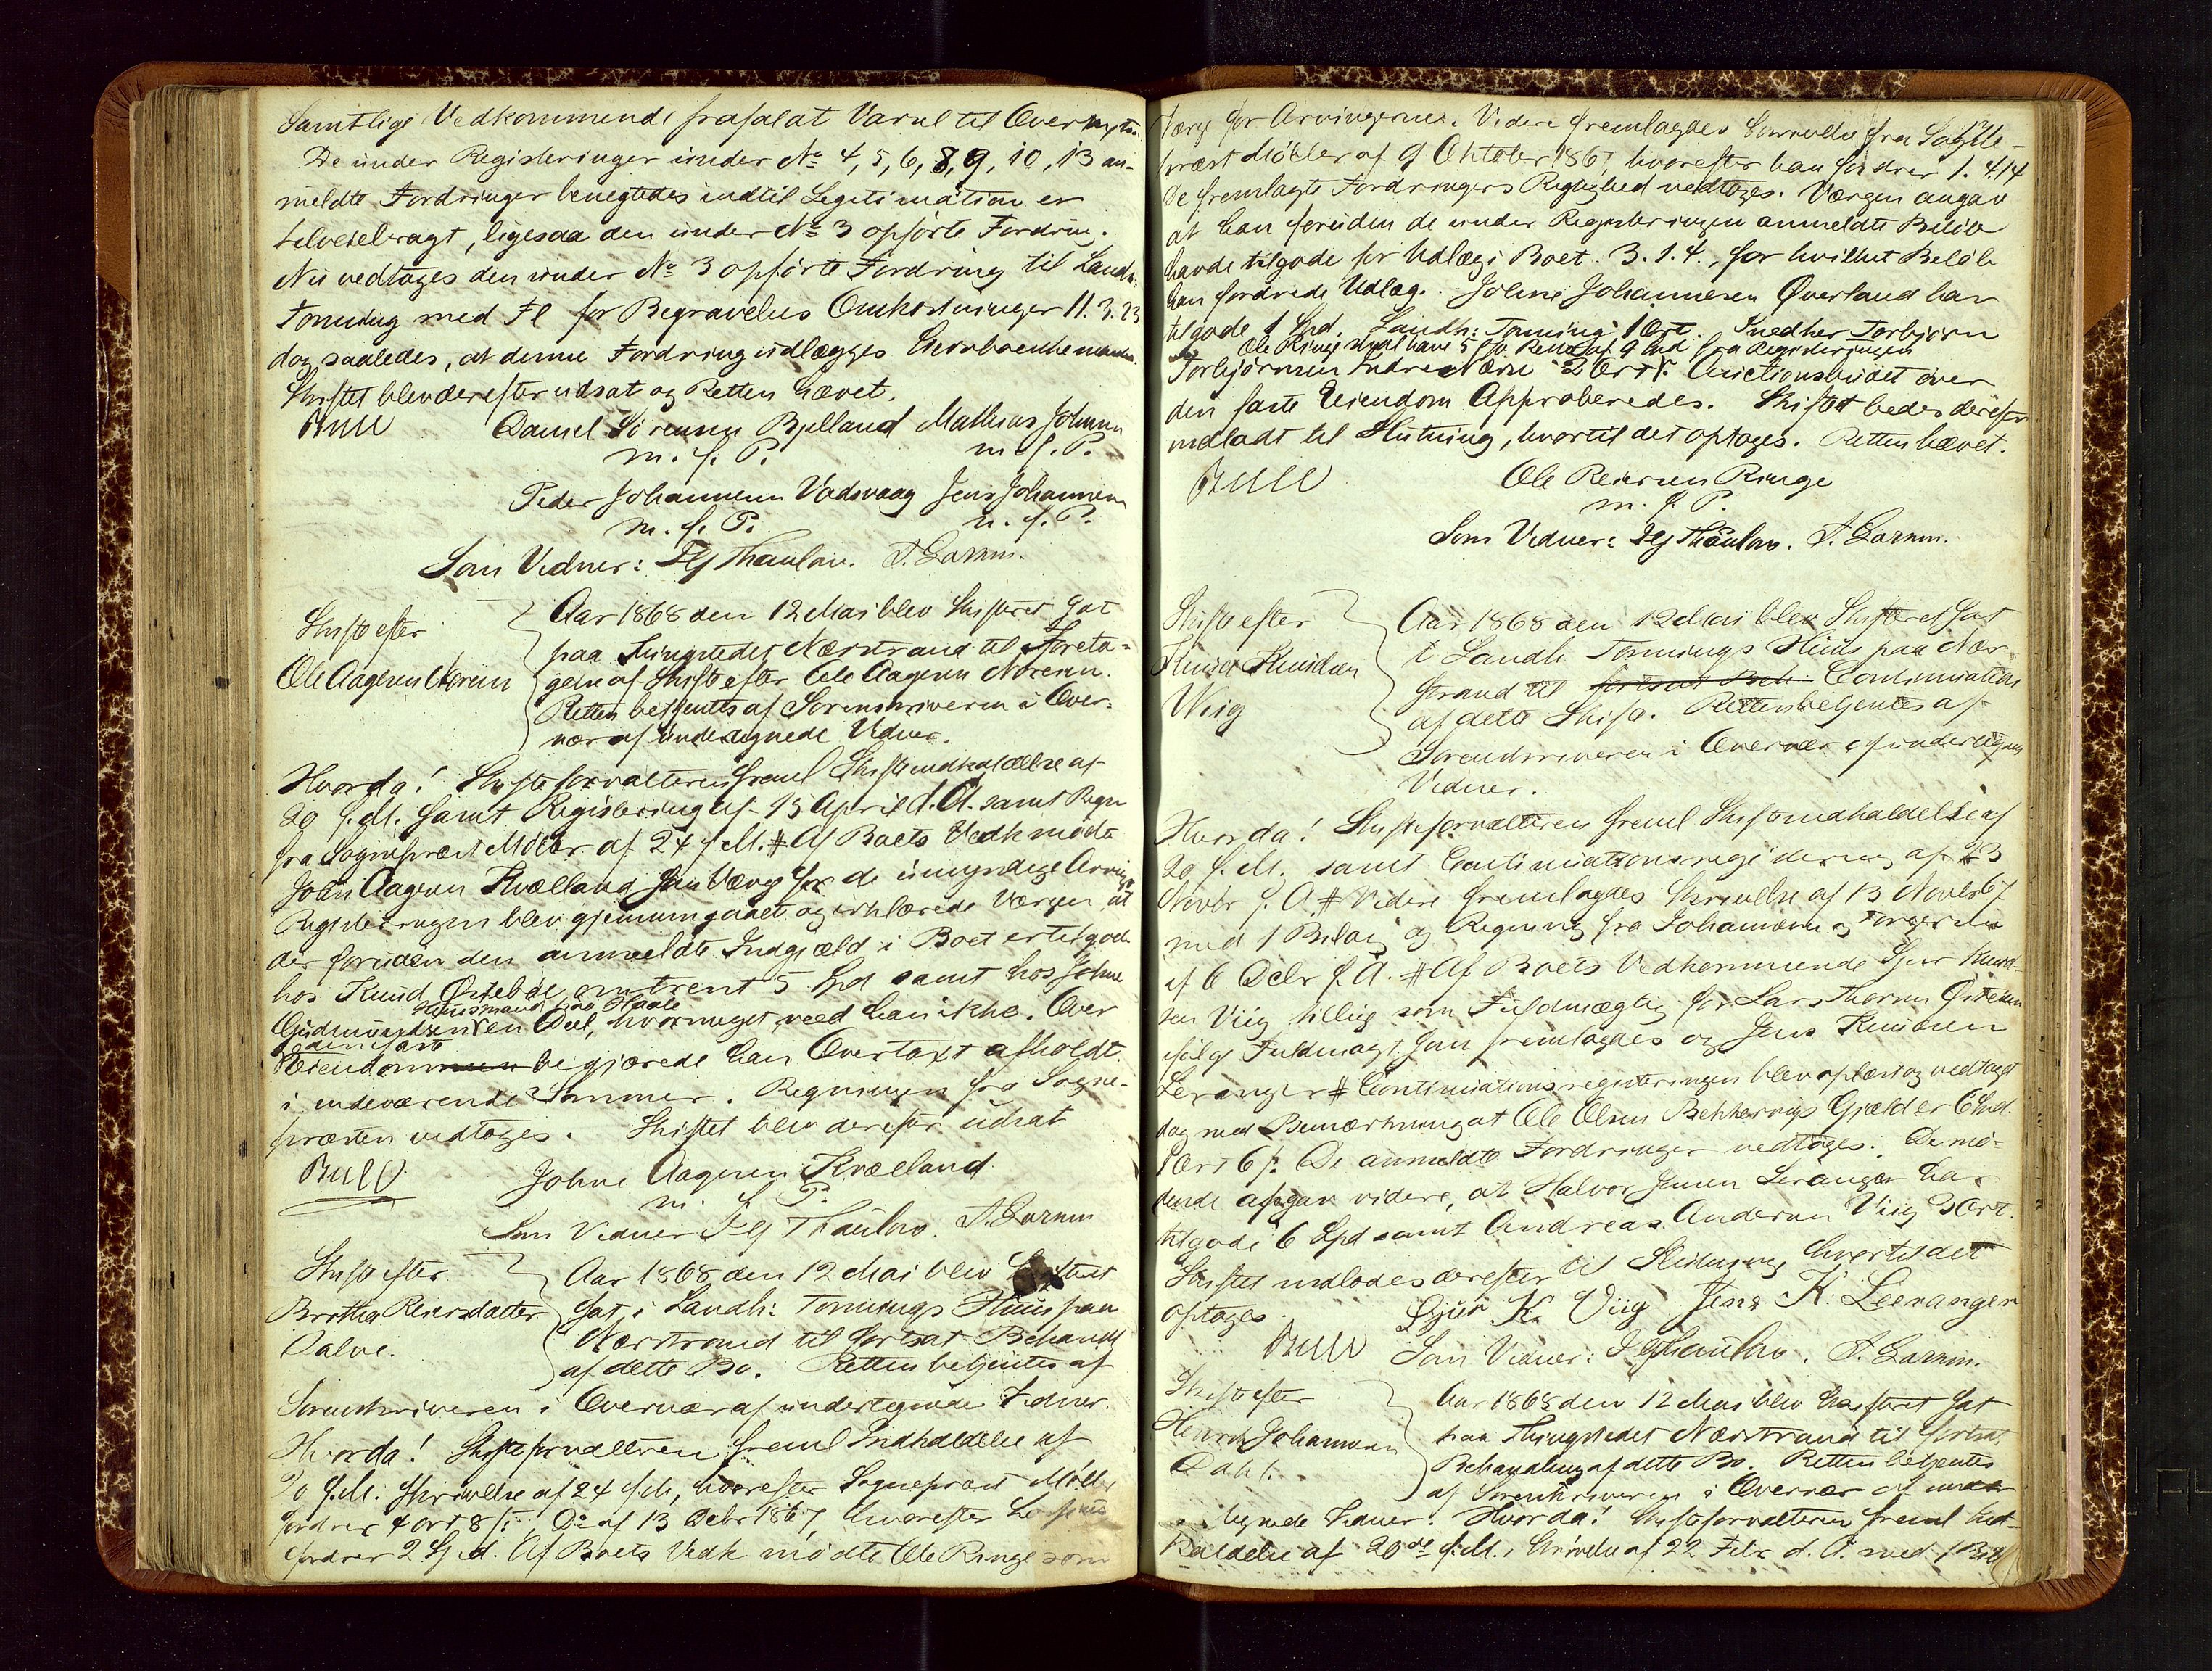 Samtlige Vedkommende frafaldt Varsel til Overskjøn.
De under Registeringen under No 4, 5, 6, 8, 9, 10, 13 an-
meldte Fordringer benegtedes indtil Legitimation er
tilveiebragt, ligesaa den under No 3 opførte Fordring.
Nu vedtages den under No 3 opførte Fordring til Landh:
Tonning med Fl for Begravelses Omkostninger 11. 3. 23.
dog saaledes, at denne Fordring udlægges
Skiftet blev derefter udsat og Retten hævet.
Bull Daniel Sørensen Bjelland Mathias Johnsen
m. f. P. m. f. P.
Peder Johannesen Vadsvaag Jens Johannesen
m. f. P. m. f. P.
Som Vidner: Thaulow. T. Larsen.
Skifte efter
Ole Aagesen Noreim
Aar 1868 den 12 Mai blev Skifteret sat
paa Thingstedet Nærstrand til Foreta-
gelse af Skifte efter Ole Aagesen Noreim.
Retten betjentes af Sorenskriveren i Over-
vær af undertegnede Vidner.
Hvorda! Skifteforvalteren freml Skifteindkaldelse af
20 f. M. samt Registering af 15 April d. A. samt Regn
fra Sogneprest Møller af 24 f. M. # Af Boets Vedk mødte
John Aagesen Kvælland som Værge for de umyndige Arvinger
Registeringen blev gjennemgaaet og erklærede Værgen at
der foruden den anmeldte Indgjæld i Boet er tilgode
hos Knud Østebøe omtrent 5 Spd samt hos Johne
Husmand paa Haale
Gudmundsen en Deel, hvormeget veed han ikke. Over
den faste
Eiendommen begjærede han Overtaxt afholdt
i indeværende Sommer. Regningen fra Sogne-
presten vedtages. Skiftet blev derefter udsat
Bull Johne Aagesen Kvælland
m. f. P.
Som Vidner Thaulow. T. Larsen
Skifte efter
Brotha Reiersdatter
Salve.
Aar 1868 den 12 Mai blev Skifteret
sat i Landh: Tonnings Huus paa
Nærstrand til fortsat Behandl
af dette Bo. Retten betjentes af
Sorenskriveren i Overvær af undertegnede Vidner.
Hvorda! Skifteforvalteren freml Indkaldelse af
20 f. M. Skrivelse af 24 f. M., hvorefter Sogneprest Møller
fordrer 4 Ort 8 s. Do af 13 Debr 1867, hvorefter
fordrer 2 Spd. Af Boets Vedk mødte Ole Ringe som
Værge for Arvingerne. Videre fremlagdes Skrivelse fra Sogne-
prest Møller af 9 Oktober 1867, hvorefter han fordrer 1. 4. 14
De fremlagte Fordringers Rigtighed vedtages. Værgen angav
at han foruden de under Registeringen anmeldte Beløb
havde tilgode for Udlæg i Boet. 3. 1. 4., for hvilket Beløb
han fordrede Udlæg. Johne Johannesen Øverland har
tilgode 1 Spd. Landh: Tonning 1 Ort. Snedker Torbjørn
Ole Ringe skal have 5 pCt Rente af 9 Spd fra Registeringen
Torbjørnsen Indre Nærø 2 Ort. Auctionsbudet over
den faste Eiendom Approberedes. Skiftet bedes derefter
indladt til Slutning, hvortil det optages. Retten hævet.
Bull Ole Reiersen Ringe
m. f. P.
Som Vidner: Thaulow. T. Larsen.
Skifte efter
Knud Knudsen
Wiig
Aar 1868 den 12 Mai blev Skifteret sat
i Landh Tonnings Huus paa Nær-
strand til fortsat Beh. Continuation
af dette Skifte. Retten betjentes af
Sorenskriveren i Overvær af undertegnede
Vidner.
Hvorda! Skifteforvalteren freml Skifteindkaldelse af
20 f. M. samt Continuationsregistering af 23
Novbr f. A. # Videre fremlagdes Skrivelse af 13 Novbr 67
med 1 Bilag og Regning fra Johannesen og
af 6 Debr f. A. # Af Boets Vedkommende Sjur Knud-
sen Viig tillige som Fuldmægtig for Lars Thorsen
ifølge Fuldmagt som fremlagdes og Jens Knudsen
Leranger # Continuationsregisteringen blev oplæst og vedtaget
dog med Bemærkning at Ole Olsen Bekkervigs Gjæld er 6 Spd
1 Ort 6 s. De anmeldte Fordringer vedtages. De mø-
dende angav videre, at Halvor Jensen Leranger har
tilgode 6 Spd samt Andreas Andersen Viig 3 Ort.
Skiftet indlodes derefter til Slutning hvortil det
optages. Sjur K. Viig Jens K. Leeranger
Bull Som Vidner: Thaulow. T. Larsen.
Skifte efter
Henrik Johannesen
Dahl.
Aar 1868 den 12 Mai blev Skifteret sat
paa Thingstedet Nærstrand til fortsat
Behandling af dette Bo. Retten betjentes
af Sorenskriveren i Overvær af under-
tegnede Vidner. Hvorda! Skifteforvalteren freml Ind-
kaldelse af 20de f. M., Skrivelse af 22 Febr d. A. med 1 Bilag